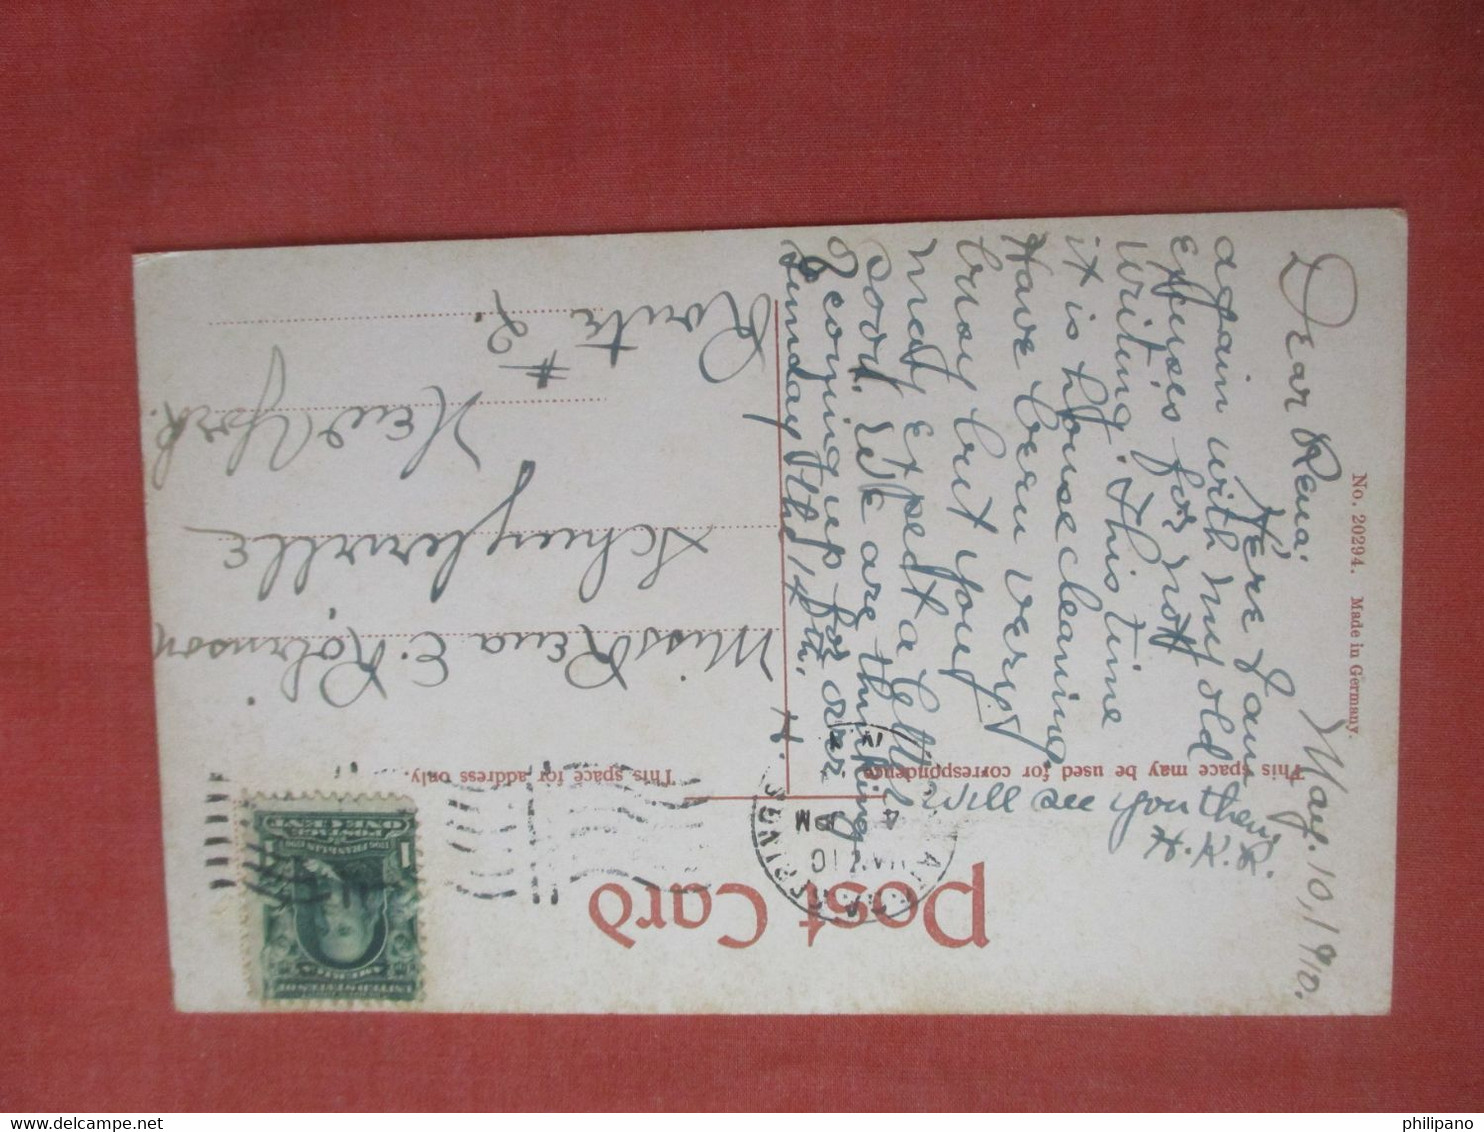 Post Card
This space may be used for correspondence
This space for address only.
No. 20294. Made in Germany.
May. 10, 1910.
Dear Rena:
Here I am
again with my old
Excuses for not
writing. This time
it is house cleaning
Have been very
busy but you
may expect a letter
soon. We are thinking
of coming up for over
Sunday the 14th.
Will see you then,
H. K. R.
Miss Rena E. Robinson
Schuylerville
New York.
Route
#2.
SARATOGA SPRINGS
MAY 10
4 PM
N.Y.
UNITED STATES OF
AMERICA
1706 FRANKLIN 1790
POSTAGE
ONE CENT
1 1
philipano